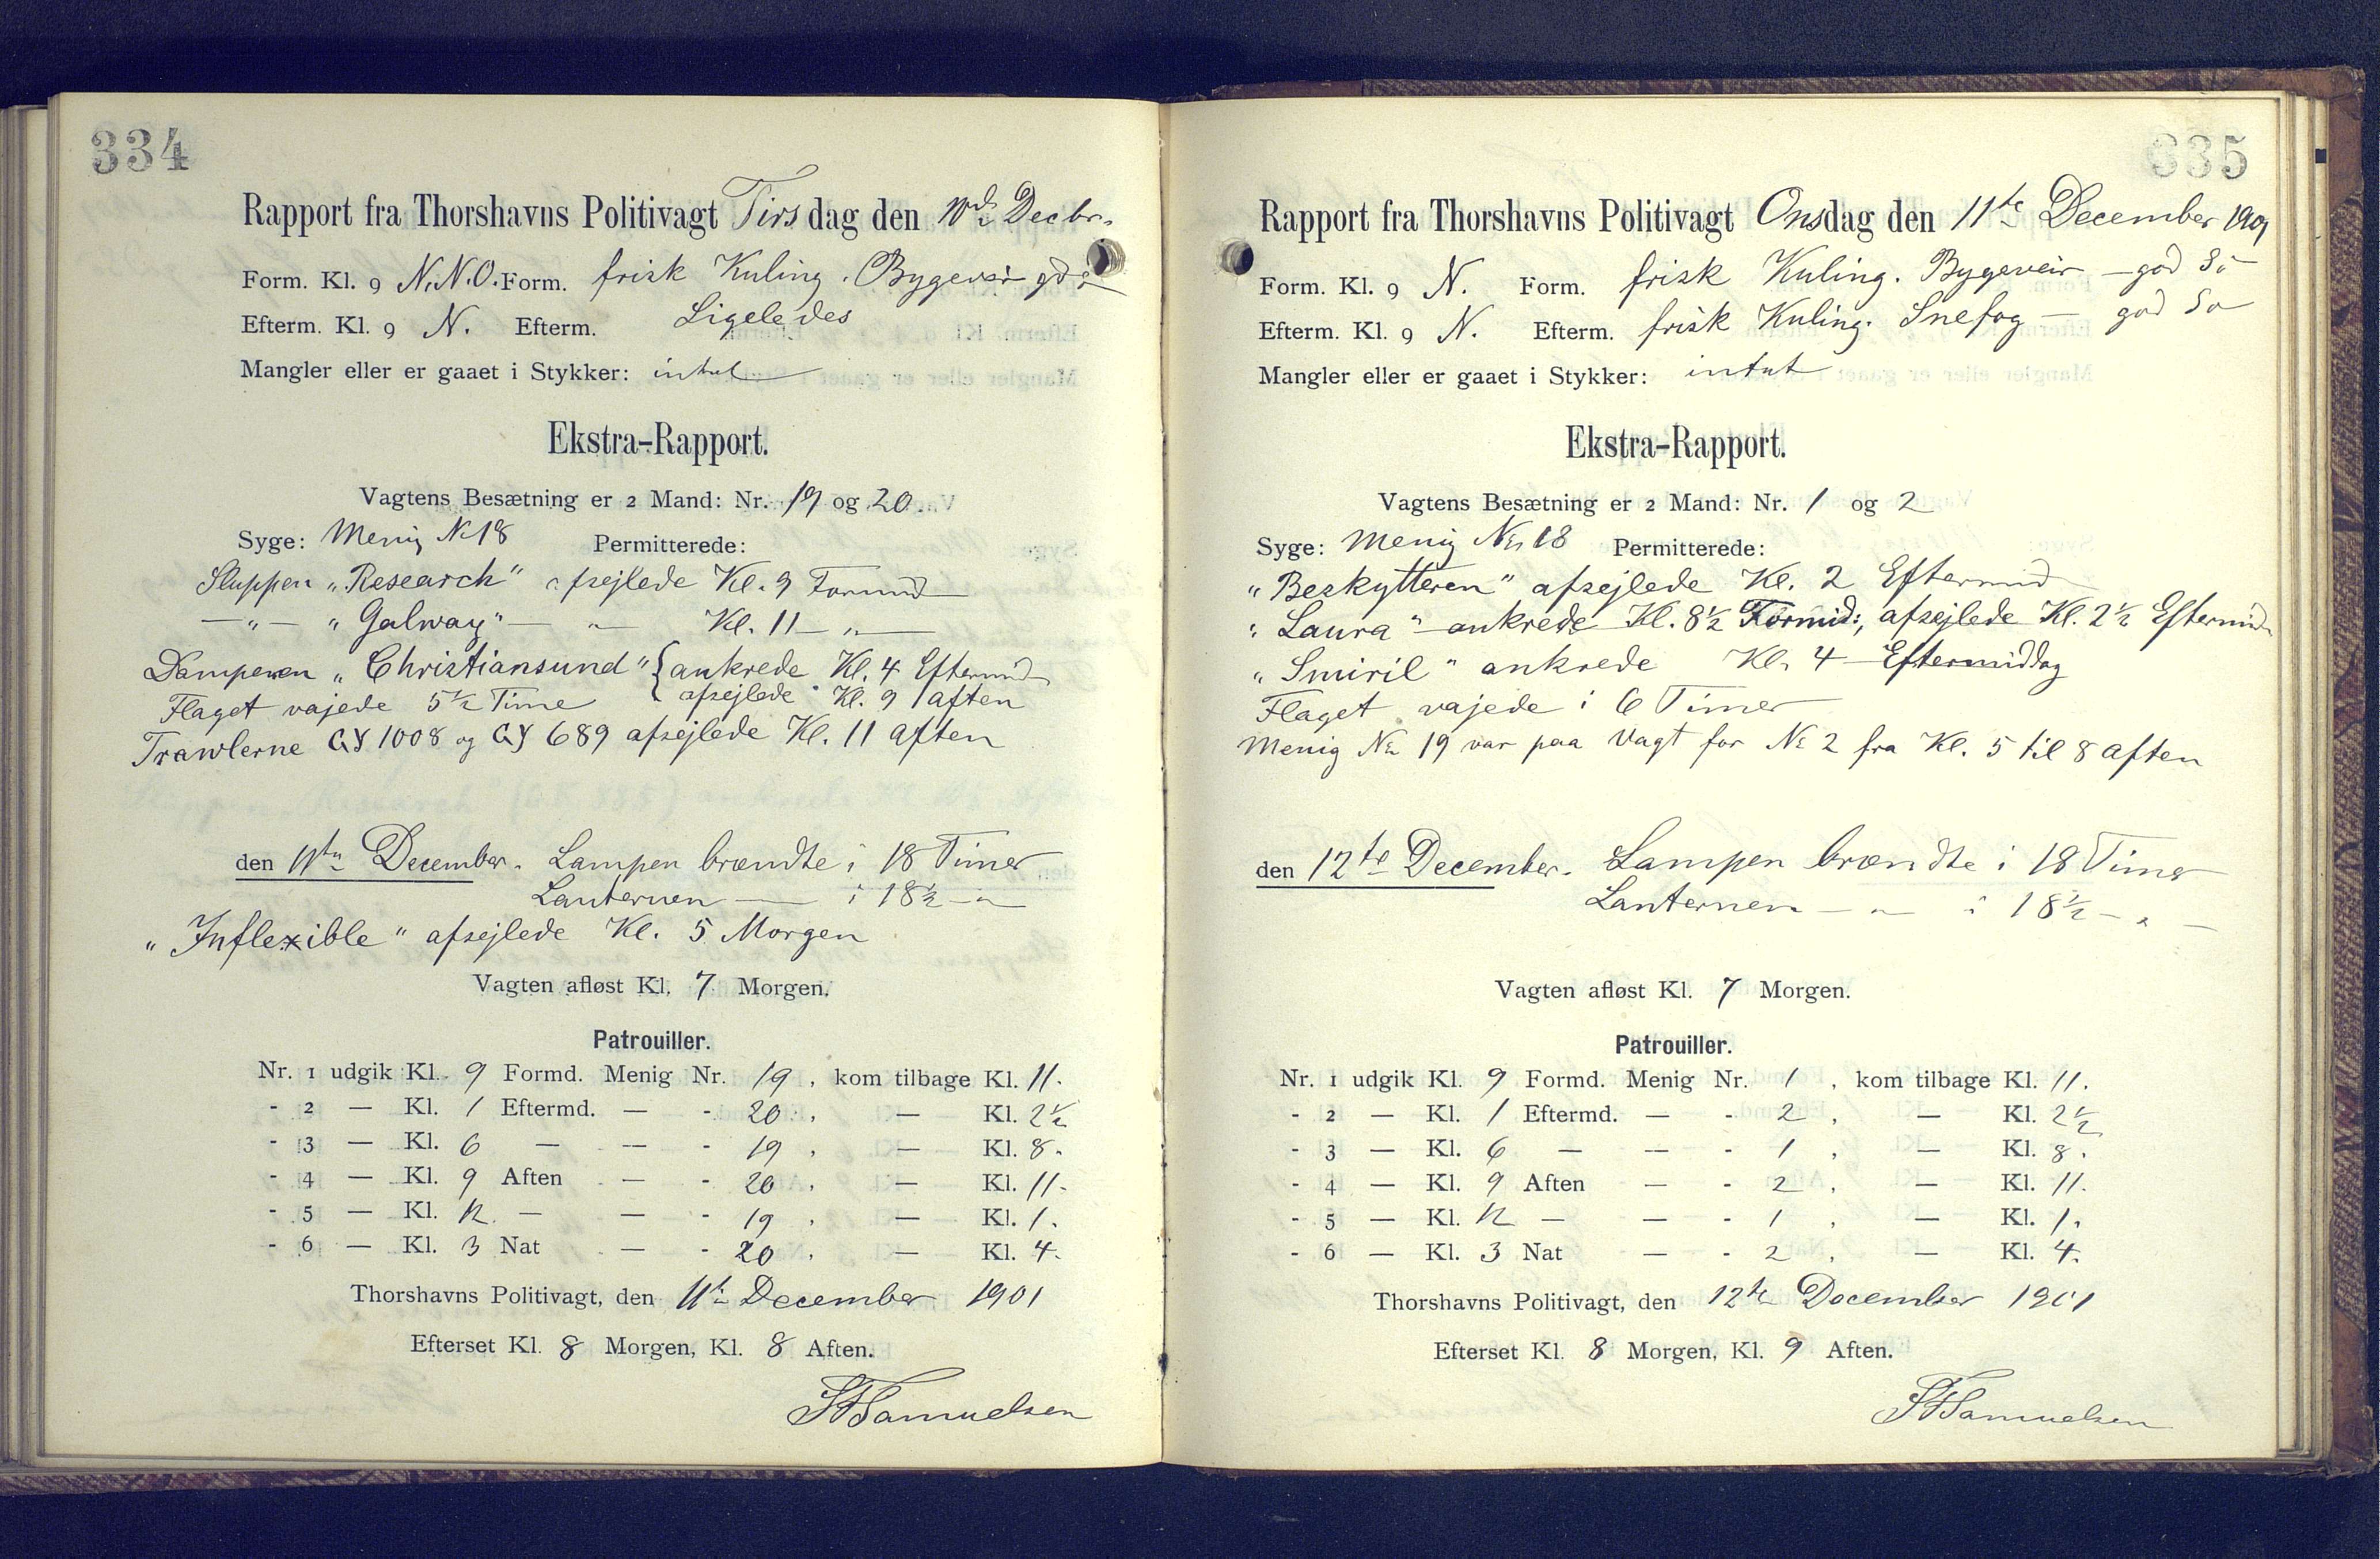 334
Rapport fra Thorshavns Politivagt Tirsdag den 10de Decbr.
Form. Kl. 9 N.N.O. Form. frisk Kuling. Bygeveir
Efterm. Kl. 9 N. Efterm. Ligeledes
Mangler eller er gaaet i Stykker: intet
Ekstra-Rapport.
Vagtens Besætning er 2 Mand: Nr. 19 og 20.
Syge: Menig No 18 Permitterede:
Sluppen „Research" afsejlede Kl. 9 Formid
— „ — „Galway" — „ — Kl. 11 — „ —
Damperen „Christiansund" { ankrede Kl. 4 Eftermid
Flaget vajede 5½ Time { afsejlede Kl. 9 Aften
Trawlerne GY 1008 og GY 689 afsejlede Kl. 11 Aften
den 11te December. Lampen brændte i 18 Timer
Lanternen — i 18½ — „ —
„Inflexible" afsejlede Kl. 5 Morgen
Vagten afløst Kl. 7 Morgen.
Patrouiller.
Nr. 1 udgik Kl. 9 Formd. Menig Nr. 19, kom tilbage Kl. 11.
- 2 — Kl. 1 Eftermd. — - 20, — Kl. 2½
- 3 — Kl. 6 — — - 19, — Kl. 8.
- 4 — Kl. 9 Aften — - 20, — Kl. 11.
- 5 — Kl. 12. — — - 19, — Kl. 1.
- 6 — Kl. 3 Nat — - 20, — Kl. 4.
Thorshavns Politivagt, den 11te December 1901
Efterset Kl. 8 Morgen, Kl. 8 Aften.
Samuelsen
335
Rapport fra Thorshavns Politivagt Onsdag den 11te December 1901
Form. Kl. 9 N. Form. frisk Kuling. Bygeveir — god Sö
Efterm. Kl. 9 N. Efterm. frisk Kuling. Snefog — god Sö
Mangler eller er gaaet i Stykker: intet
Ekstra-Rapport.
Vagtens Besætning er 2 Mand: Nr. 1 og 2
Syge: Menig No 18 Permitterede:
„Beskytteren" afsejlede Kl. 2 Eftermid
„Laura" ankrede Kl. 8½ Formid:, afsejlede Kl. 2½ Eftermid
„Smiril" ankrede Kl. 4 Eftermiddag
Flaget vajede i 6 Timer
Menig No 19 var paa Vagt for No 2 fra Kl. 5 til 8 Aften
den 12te December. Lampen brændte i 18 Timer
Lanternen — „ — i 18½ — „ —
Vagten afløst Kl. 7 Morgen.
Patrouiller.
Nr. 1 udgik Kl. 9 Formd. Menig Nr. 1, kom tilbage Kl. 11.
- 2 — Kl. 1 Eftermd. — - 2, — Kl. 2½
- 3 — Kl. 6 — — - 1, — Kl. 8.
- 4 — Kl. 9 Aften — - 2, — Kl. 11.
- 5 — Kl. 12 — — - 1, — Kl. 1.
- 6 — Kl. 3 Nat — - 2, — Kl. 4.
Thorshavns Politivagt, den 12te December 1901
Efterset Kl. 8 Morgen, Kl. 9 Aften.
Samuelsen